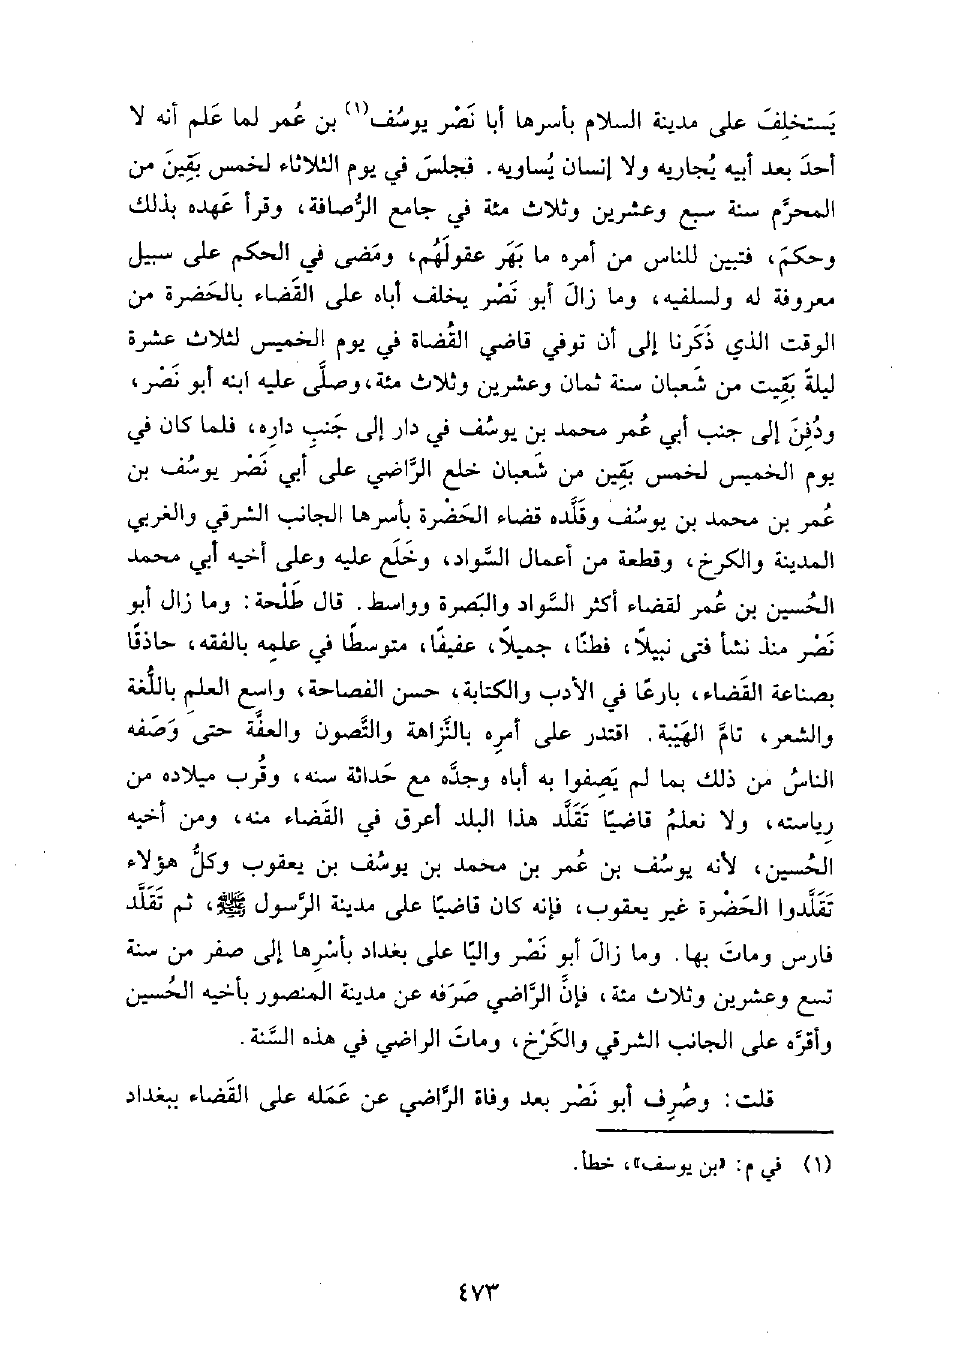 يَستخلِفَ على مدينة السلام بأسرها أبا نَصْر يوسُف(١) بن عُمر لما عَلم أنه لا
أحدَ بعد أبيه يُجاريه ولا إنسان يُساويه. فجلسَ في يوم الثلاثاء لخمس بَقِينَ من
المحرَّم سنة سبع وعشرين وثلاث مئة في جامع الرُّصافة، وقرأ عَهده بذلك
وحكمَ، فتبين للناس من أمره ما بَهَر عقولَهُم، ومَضى في الحكم على سبيل
معروفة له ولسلفيه، وما زالَ أبو نَصْر يخلف أباه على القَضاء بالحَضرة من
الوقت الذي ذَكَرنا إلى أن توفي قاضي القُضاة في يوم الخميس لثلاث عشرة
ليلةً بَقِيت من شَعبان سنة ثمان وعشرين وثلاث مئة، وصلَّى عليه ابنه أبو نَصْر،
ودُفِنَ إلى جنب أبي عُمر محمد بن يوسُف في دار إلى جَنبِ دارِه، فلما كان في
يوم الخميس لخمس بَقِين من شَعبان خلع الرَّاضي على أبي نَصْر يوسُف بن
عُمر بن محمد بن يوسُف وقَلَّده قضاء الحَضْرة بأسرها الجانب الشرقي والغربي
المدينة والكرخ، وقطعة من أعمال السَّواد، وخَلَع عليه وعلى أخيه أبي محمد
الحُسين بن عُمر لقضاء أكثر السَّواد والبَصرة وواسط. قال طَلْحة: وما زال أبو
نَصْر منذ نشأ فتى نبيلاً، فطنًا، جميلاً، عفيفًا، متوسطًا في علمِه بالفقه، حاذقًا
بصناعة القَضاء، بارعًا في الأدب والكتابة، حسن الفصاحة، واسع العلم باللُّغة
والشعر، تامَّ الهَيْبة. اقتدر على أمرِه بالنَّزاهة والتَّصون والعفَّة حتى وَصَفه
الناسُ من ذلك بما لم يَصِفوا به أباه وجدَّه مع حَداثة سنه، وقُرب ميلاده من
رياستِه، ولا نعلمُ قاضيًا تَقَلَّد هذا البلد أعرق في القَضاء منه، ومن أخيه
الحُسين، لأنه يوسُف بن عُمر بن محمد بن يوسُف بن يعقوب وكلُّ هؤلاء
تَقَلَّدوا الحَضْرة غير يعقوب، فإنه كان قاضيًا على مدينة الرَّسول ﷺ، ثم تَقَلَّد
فارس وماتَ بها. وما زالَ أبو نَصْر واليًا على بغداد بأسْرِها إلى صفر من سنة
تسع وعشرين وثلاث مئة، فإنَّ الرَّاضي صَرَفه عن مدينة المنصور بأخيه الحُسين
وأقرَّه على الجانب الشرقي والكَرْخ، وماتَ الراضي في هذه السَّنة.
قلت: وصُرِف أبو نَصْر بعد وفاة الرَّاضي عن عَمَله على القَضاء ببغداد
(١) في م: «بن يوسف»، خطأ.
٤٧٣